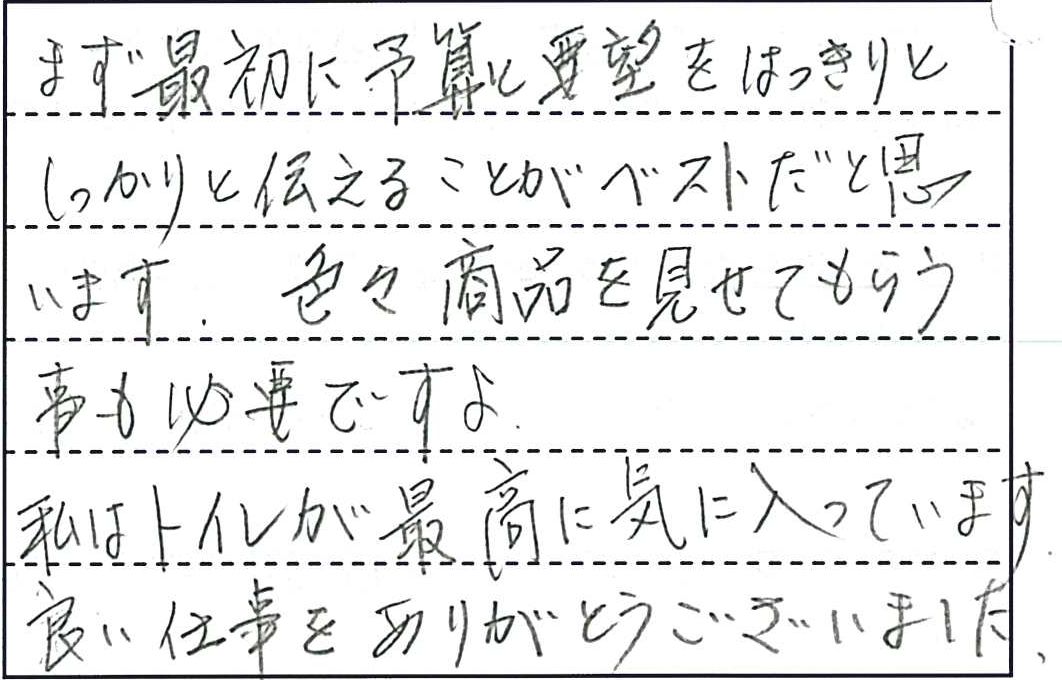 まず最初に予算と要望をはっきりと
しっかりと伝えることがベストだと思
います. 色々商品を見せてもらう
事も必要ですよ.
私はトイレが最高に気に入っています.
良い仕事をありがとうございました、